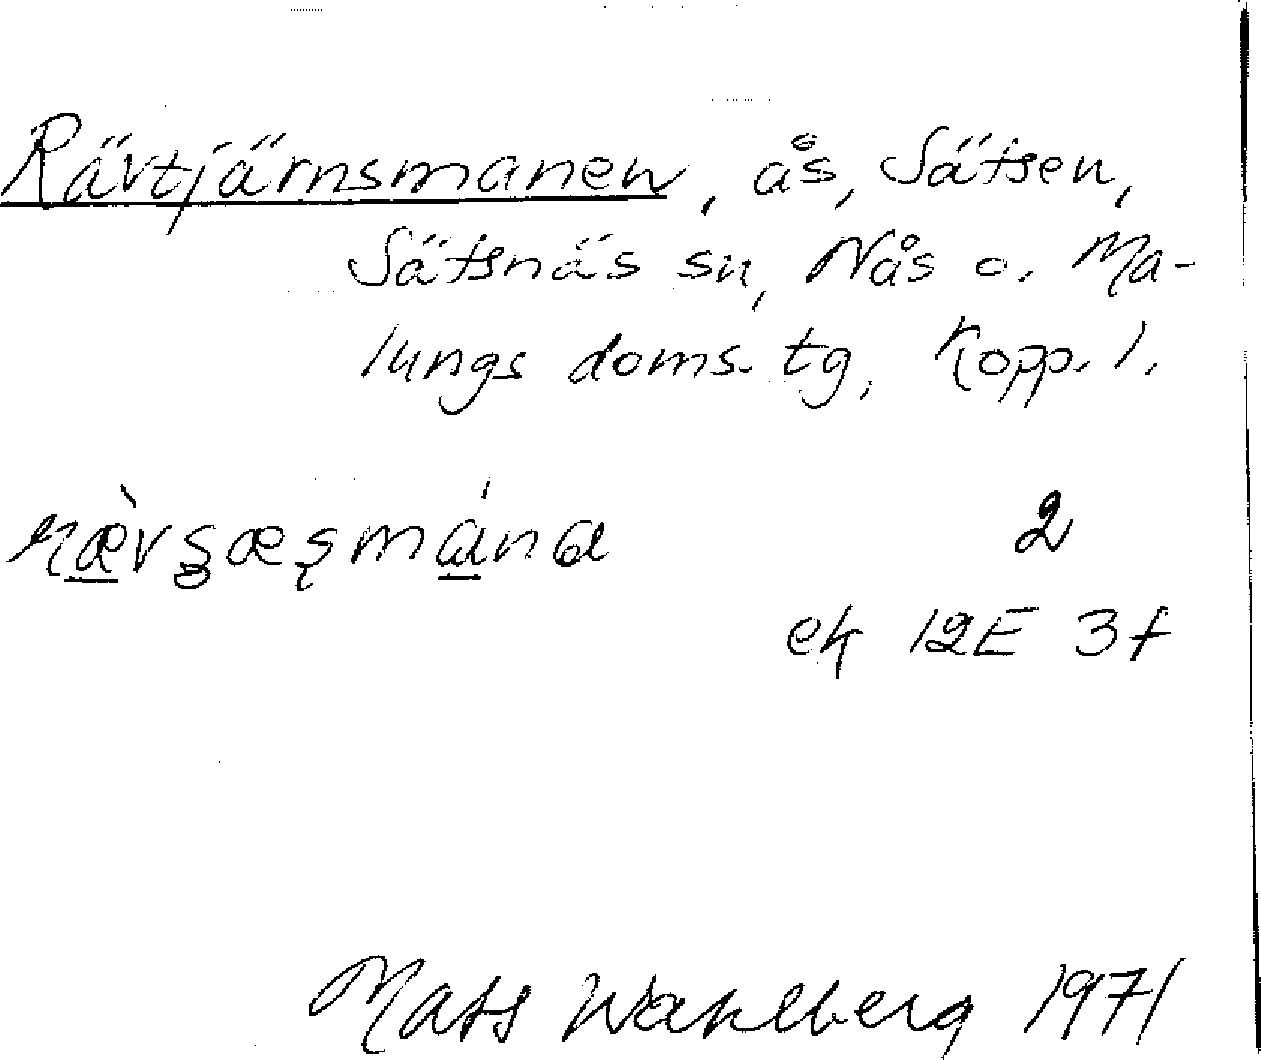 Rävtjärnsmanen, ås, Sätsen,
Sätsnäs sn, Nås o. Ma-
lungs doms. tg, Kopp. l.
2
ek 12E 3f
Mats Wahlberg 1971